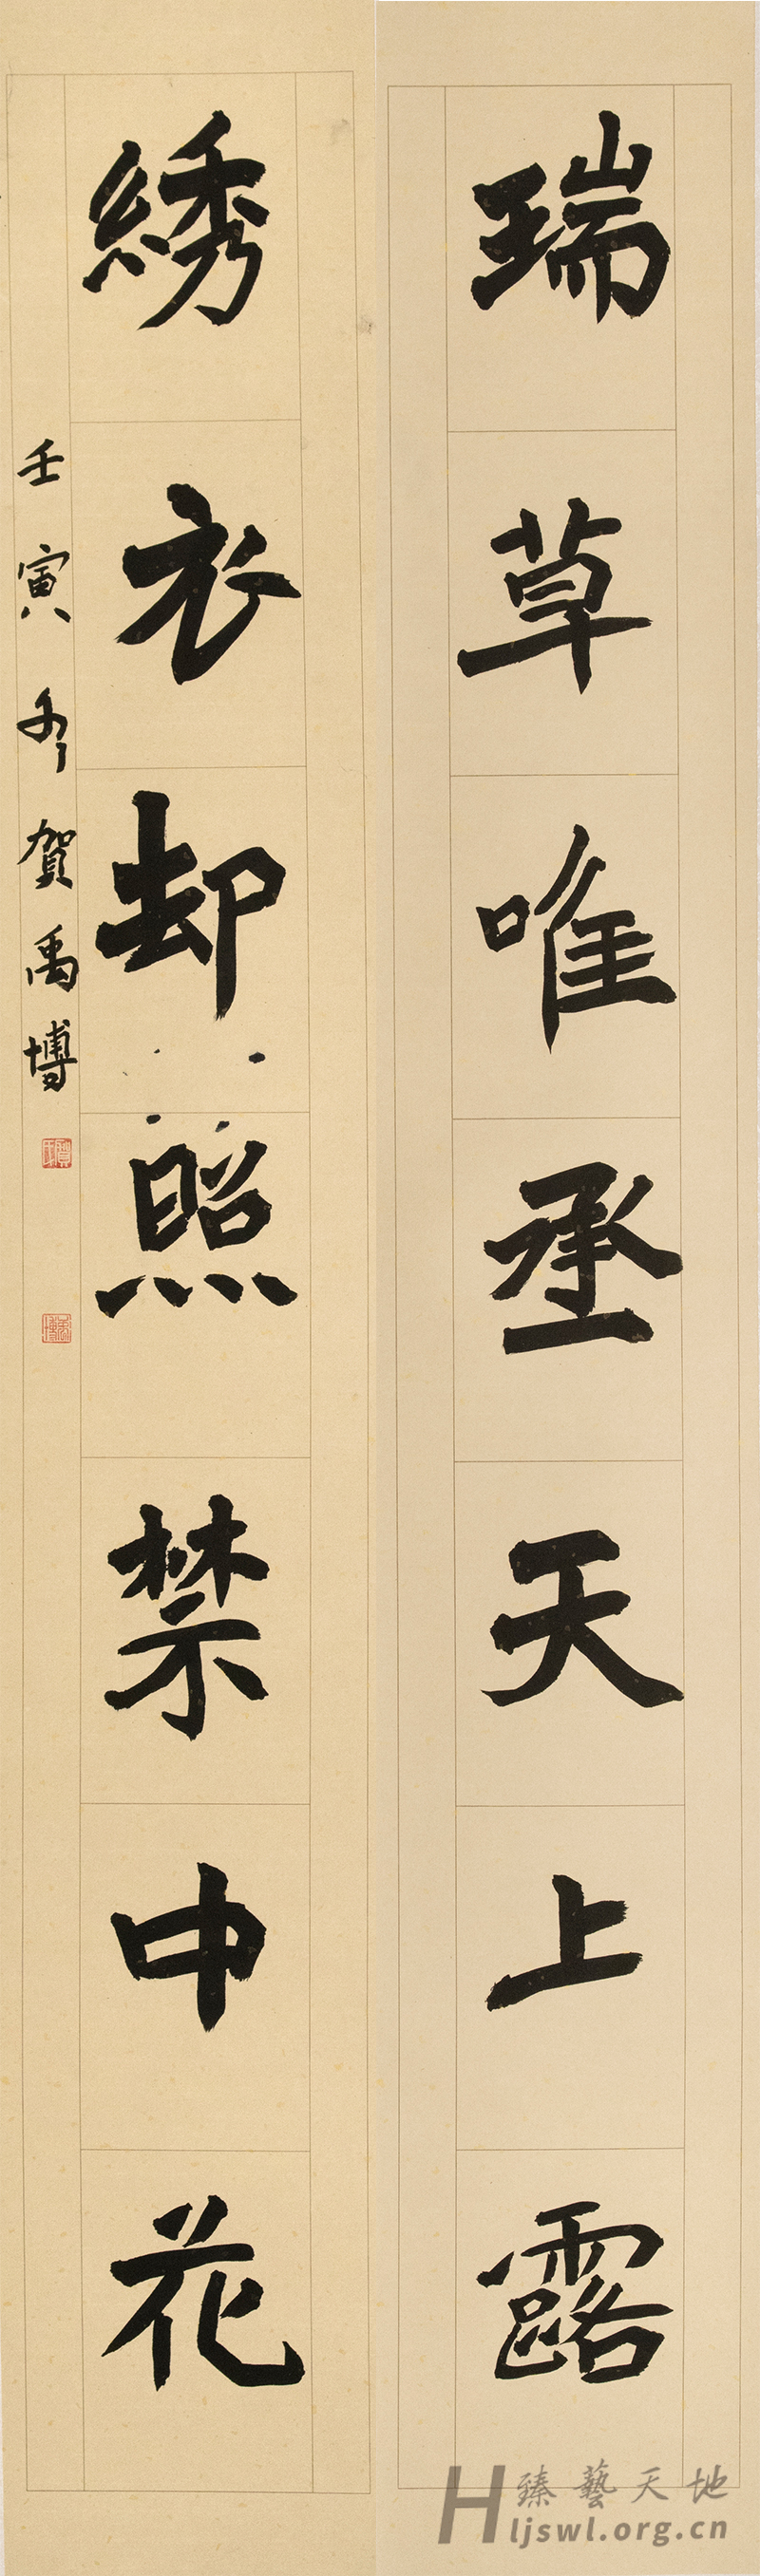 瑞草唯丞天上露
綉衣却照禁中花
壬寅冬賀禹博
臻藝天地
Hljswl.org.cn